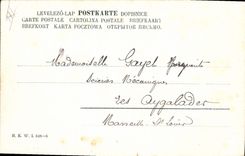 LEVELEZŐ-LAP POSTKARTE DOPISNICE
CARTE POSTALE CARTOLINA POSTALE BRIEFKAART
BREFKORT KARTA POCZTOWA ОТКРЫТОЕ ПИСЬМО.
Mademoiselle Gayet Marguerite
Scieries Mécaniques
Les Aygalades
Marseille St Louis
B. K. W. I.